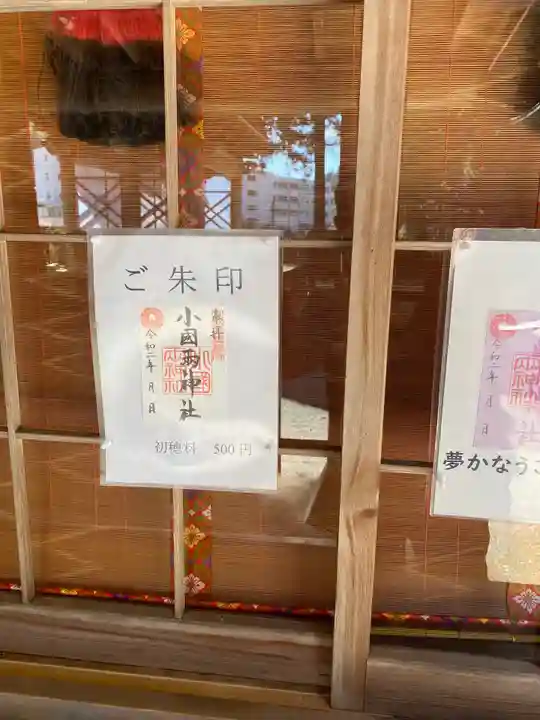 ご朱印
奉拝
小國两神社
令和二年 月 日
初穂料 500円
令和二年 月 日
社
夢かなうご